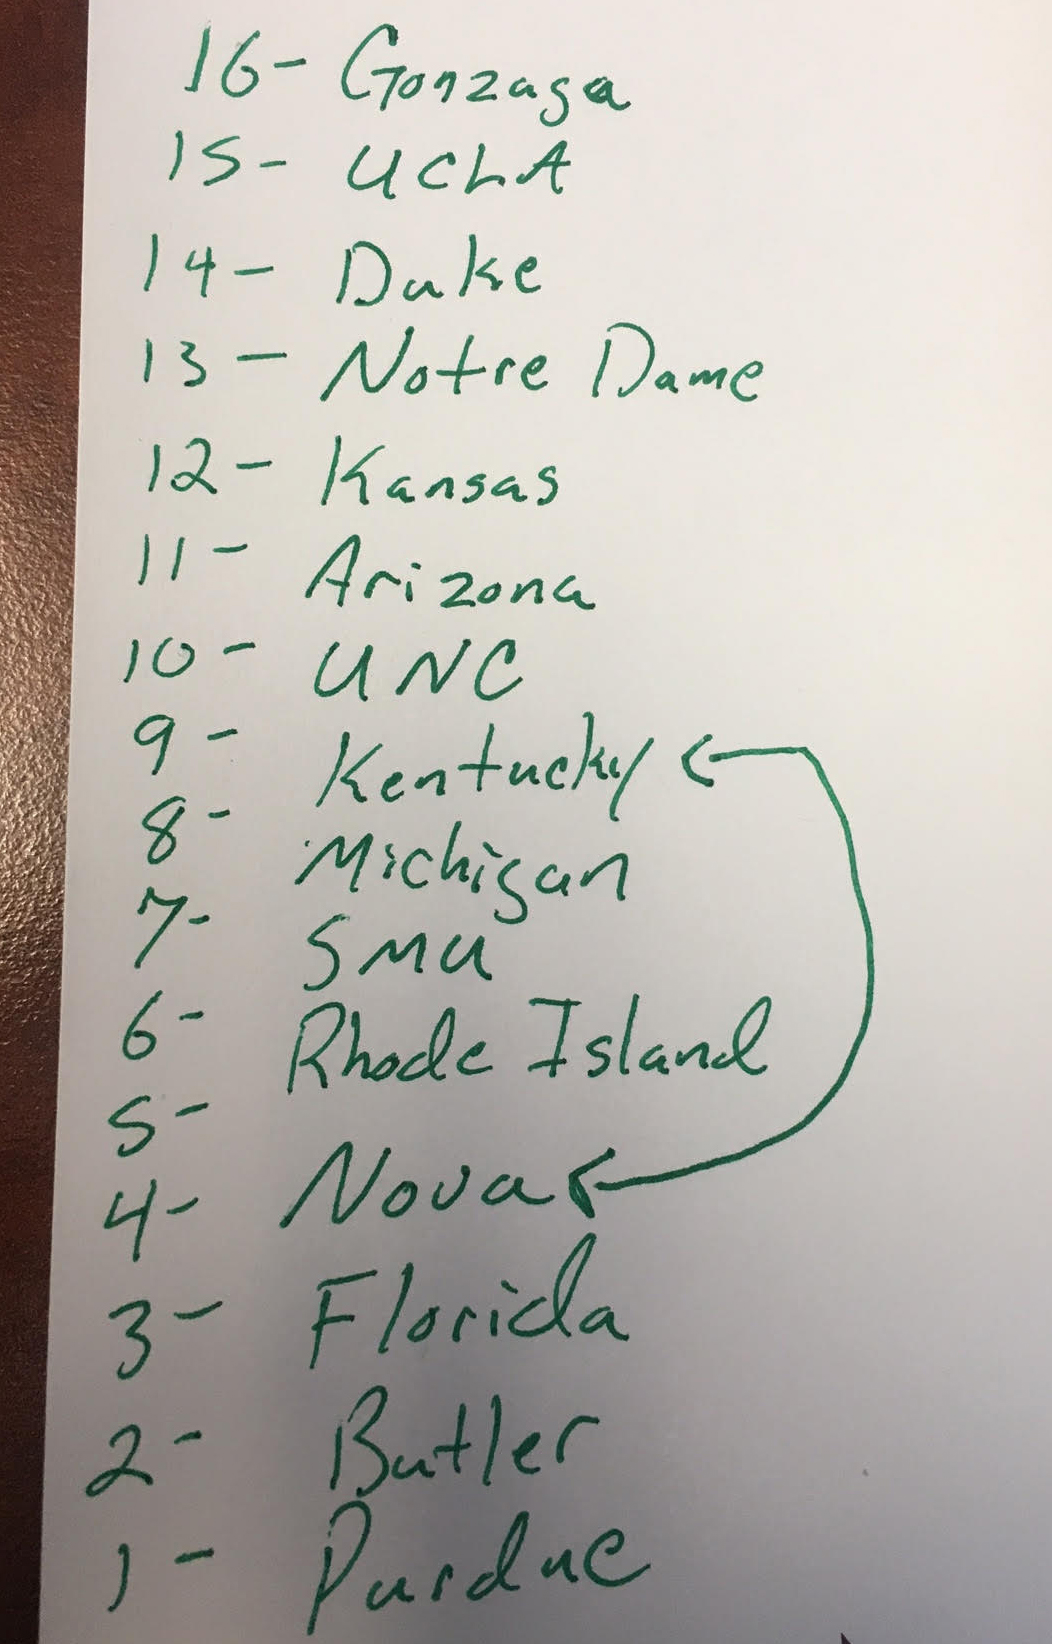 16- Gonzaga
15- UCLA
14- Duke
13- Notre Dame
12- Kansas
11- Arizona
10- UNC
9- Kentucky
8- Michigan
7- SMU
6- Rhode Island
5-
4- Nova
3- Florida
2- Butler
1- Purdue